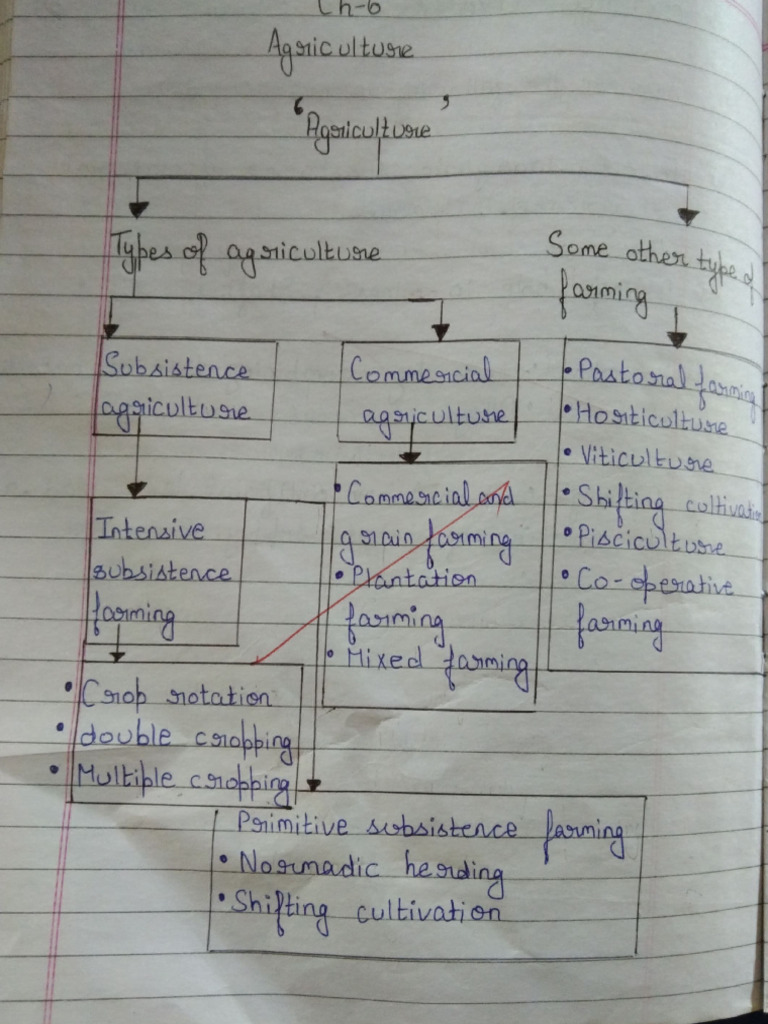 Ch-6
Agriculture
'Agriculture'
Types of agriculture
Some other type of
farming
Subsistence
agriculture
Commercial
agriculture
• Pastoral farming
• Horticulture
• Viticulture
• Shifting cultivation
• Pisciculture
• Co-operative
farming
Intensive
subsistence
farming
• Commercial and
grain farming
• Plantation
farming
• Mixed farming
• Crop rotation
• double cropping
• Multiple cropping
Primitive subsistence farming
• Normadic herding
• Shifting cultivation